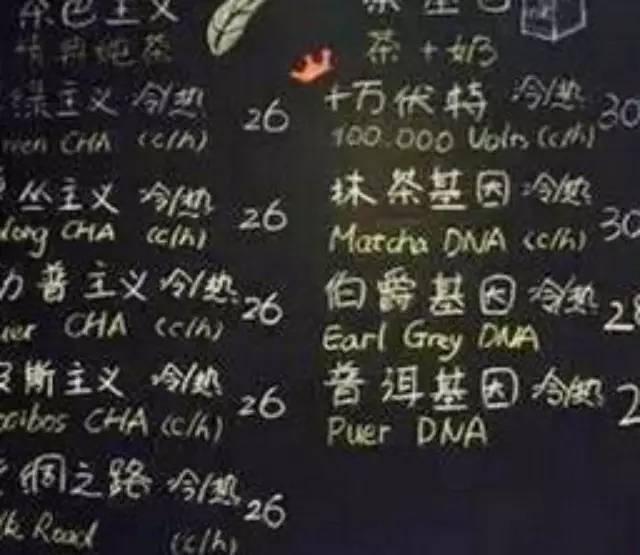 茶色主义
情典炮茶
绿主义 冷/热 26
een CHA (c/h)
丛主义 冷/热 26
long CHA (c/h)
普主义 冷/热 26
uer CHA (c/h)
斯主义 冷/热 26
ooibos CHA (c/h)
绸之路 冷/热 26
lk Road (c/h)
茶基因
茶+奶
十万伏特 冷/热 30
100.000 Volts (c/h)
抹茶基因 冷/热 30
Matcha DNA (c/h)
伯爵基因 冷/热 2
Earl Grey DNA
普洱基因 冷/热 2
Puer DNA